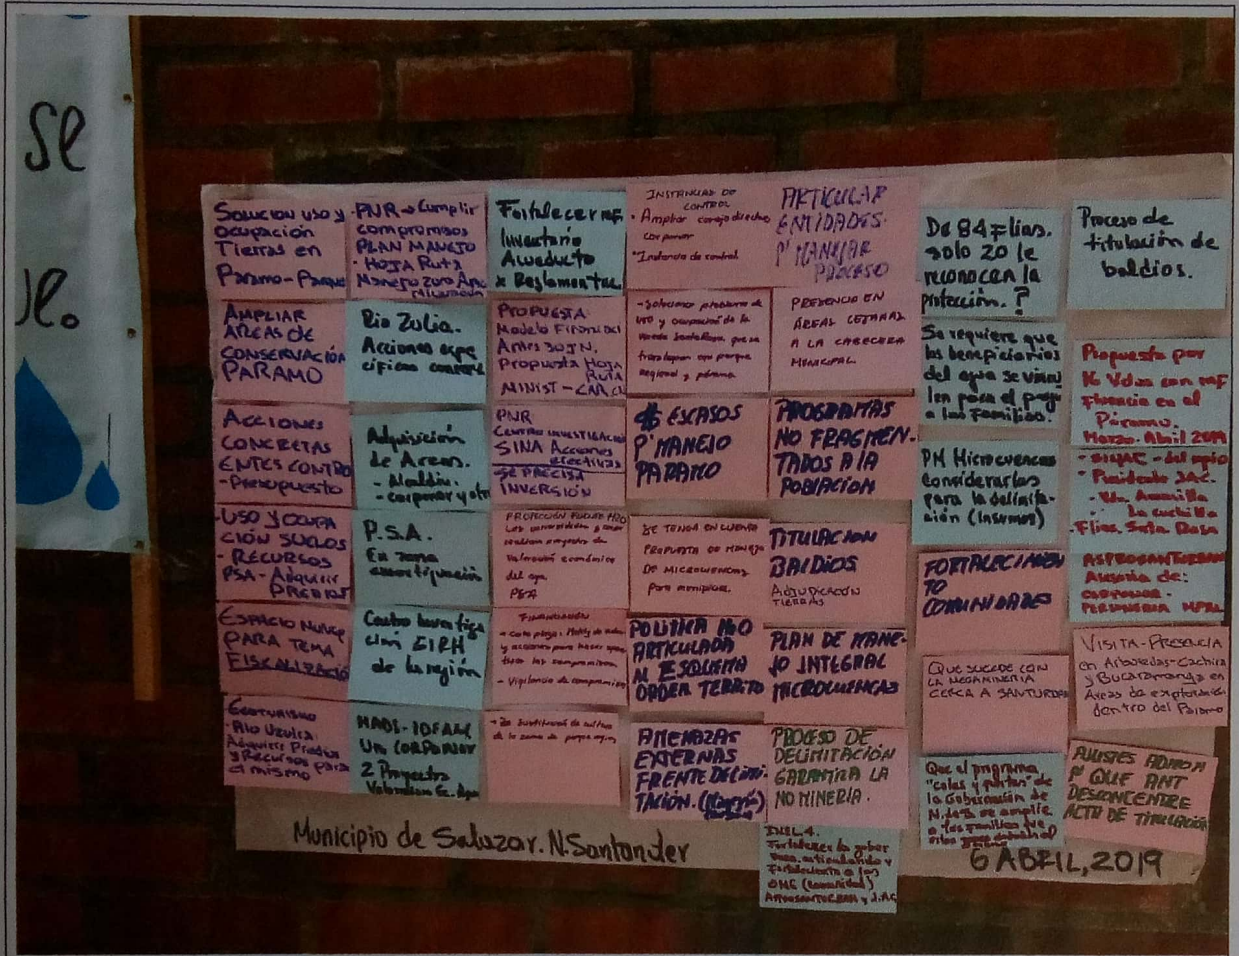 se
ue.
SOLUCION USO Y
OCUPACIÓN
TIERRAS EN
PARAMO-PARQUE
AMPLIAR
AREAS DE
CONSERVACIÓN
PARAMO
ACCIONES
CONCRETAS
ENTES CONTRO
- PRESUPUESTO
- USO Y OCUPA
CIÓN SUELOS
- RECURSOS
PSA - Adquirir
PREDIOS
ESPACIO
PARA TEMA
FISCALIZACIÓ
ECOTURISMO
Adquirir Predios
y Recursos para
el mismo
- PNR → Cumplir
compromisos
PLAN MANEJO
- HOJA RUTA
Rio Zulia.
Acciones espe
cificas
Adquisición
de Areas.
- Alcaldía.
- corponor y otro
P.S.A.
En zona
amortiguación
Centro Investiga
ción GIRH
de la región
MADS-IDEAM,
UN CORPONOR
2 Proyectos
Valoracion Ec. Agua
Fortalecer
Inventario
Acueducto
x Reglamentar
PROPUESTA
Modelo Financiaci
Antes 30 JN.
Propuesta HOJA
RUTA
MINIST-CAR
PNR
CENTRO INVESTIGACIÓN
SINA Acciones
efectivas
SE PRECISA
INVERSIÓN
PROTECCIÓN
valoración económica
del agua
PSA
FINANCIACION
- Vigilancia de compromisos
INSTANCIAS DE
CONTROL
- Ampliar consejo directivo
corponor
- Instancia de control
- Solucionar problema de
uso y ocupación de la
regional y páramo
$ ESCASOS
P' MANEJO
PARAMO
SE TENGA EN CUENTA
PROPUESTA DE MANEJO
DE MICROCUENCAS
Para municipios
POLITICA
ARTICULADA
AL ESQUEMA
ORDEN TERRITO
AMENAZAS
EXTERNAS
FRENTE DELIMI-
TACIÓN.
ARTICULAR
ENTIDADES
P' MANEJAR
PROCESO
PRESENCIA EN
ÁREAS CERCANAS
A LA CABECERA
MUNICIPAL
PROGRAMAS
NO FRAGMEN-
TADOS A LA
POBLACIÓN
TITULACIÓN
BALDIOS
ADJUDICACIÓN
TIERRAS
PLAN DE MANE-
JO INTEGRAL
MICROCUENCAS
PROCESO DE
DELIMITACIÓN
GARANTIZA LA
NO MINERÍA.
Fortalecer la gober
articulando y
ONG (comunidad)
ASPROSANTURBAN y J.A.C
De 84 Flias.
solo 20 le
reconocen la
protección. ?
Se requiere que
los beneficiarios
del agua se vincu
len para el pago
a las Familias.
PM Microcuencas
Considerarlas
para la delimita-
ción (Insumos)
FORTALECIMIEN
TO
COMUNIDADES
QUE SUCEDE CON
LA MEGAMINERIA
CERCA A SANTURBAN
Que el programa
de
la Gobernación de
N. de S. se amplíe
a las Familias
Proceso de
titulación de
baldíos.
Propuesta por
16 Vdas con
fluencia en el
Páramo.
Marzo-Abril 2019
- Presidente JAC.
La cuchilla
- Flias. Sata Rosa
ASPROSANTURBAN
Asesoria de:
CORPONOR-
VISITA-PRESENCIA
en Arboledas-Cachira
y Bucaramanga en
Áreas de explotación
dentro del Páramo
AJUSTES
P' QUE ANT
DESCONCENTRE
ACTO DE TITULACIÓN
Municipio de Salazar. N. Santander
6 ABRIL, 2019